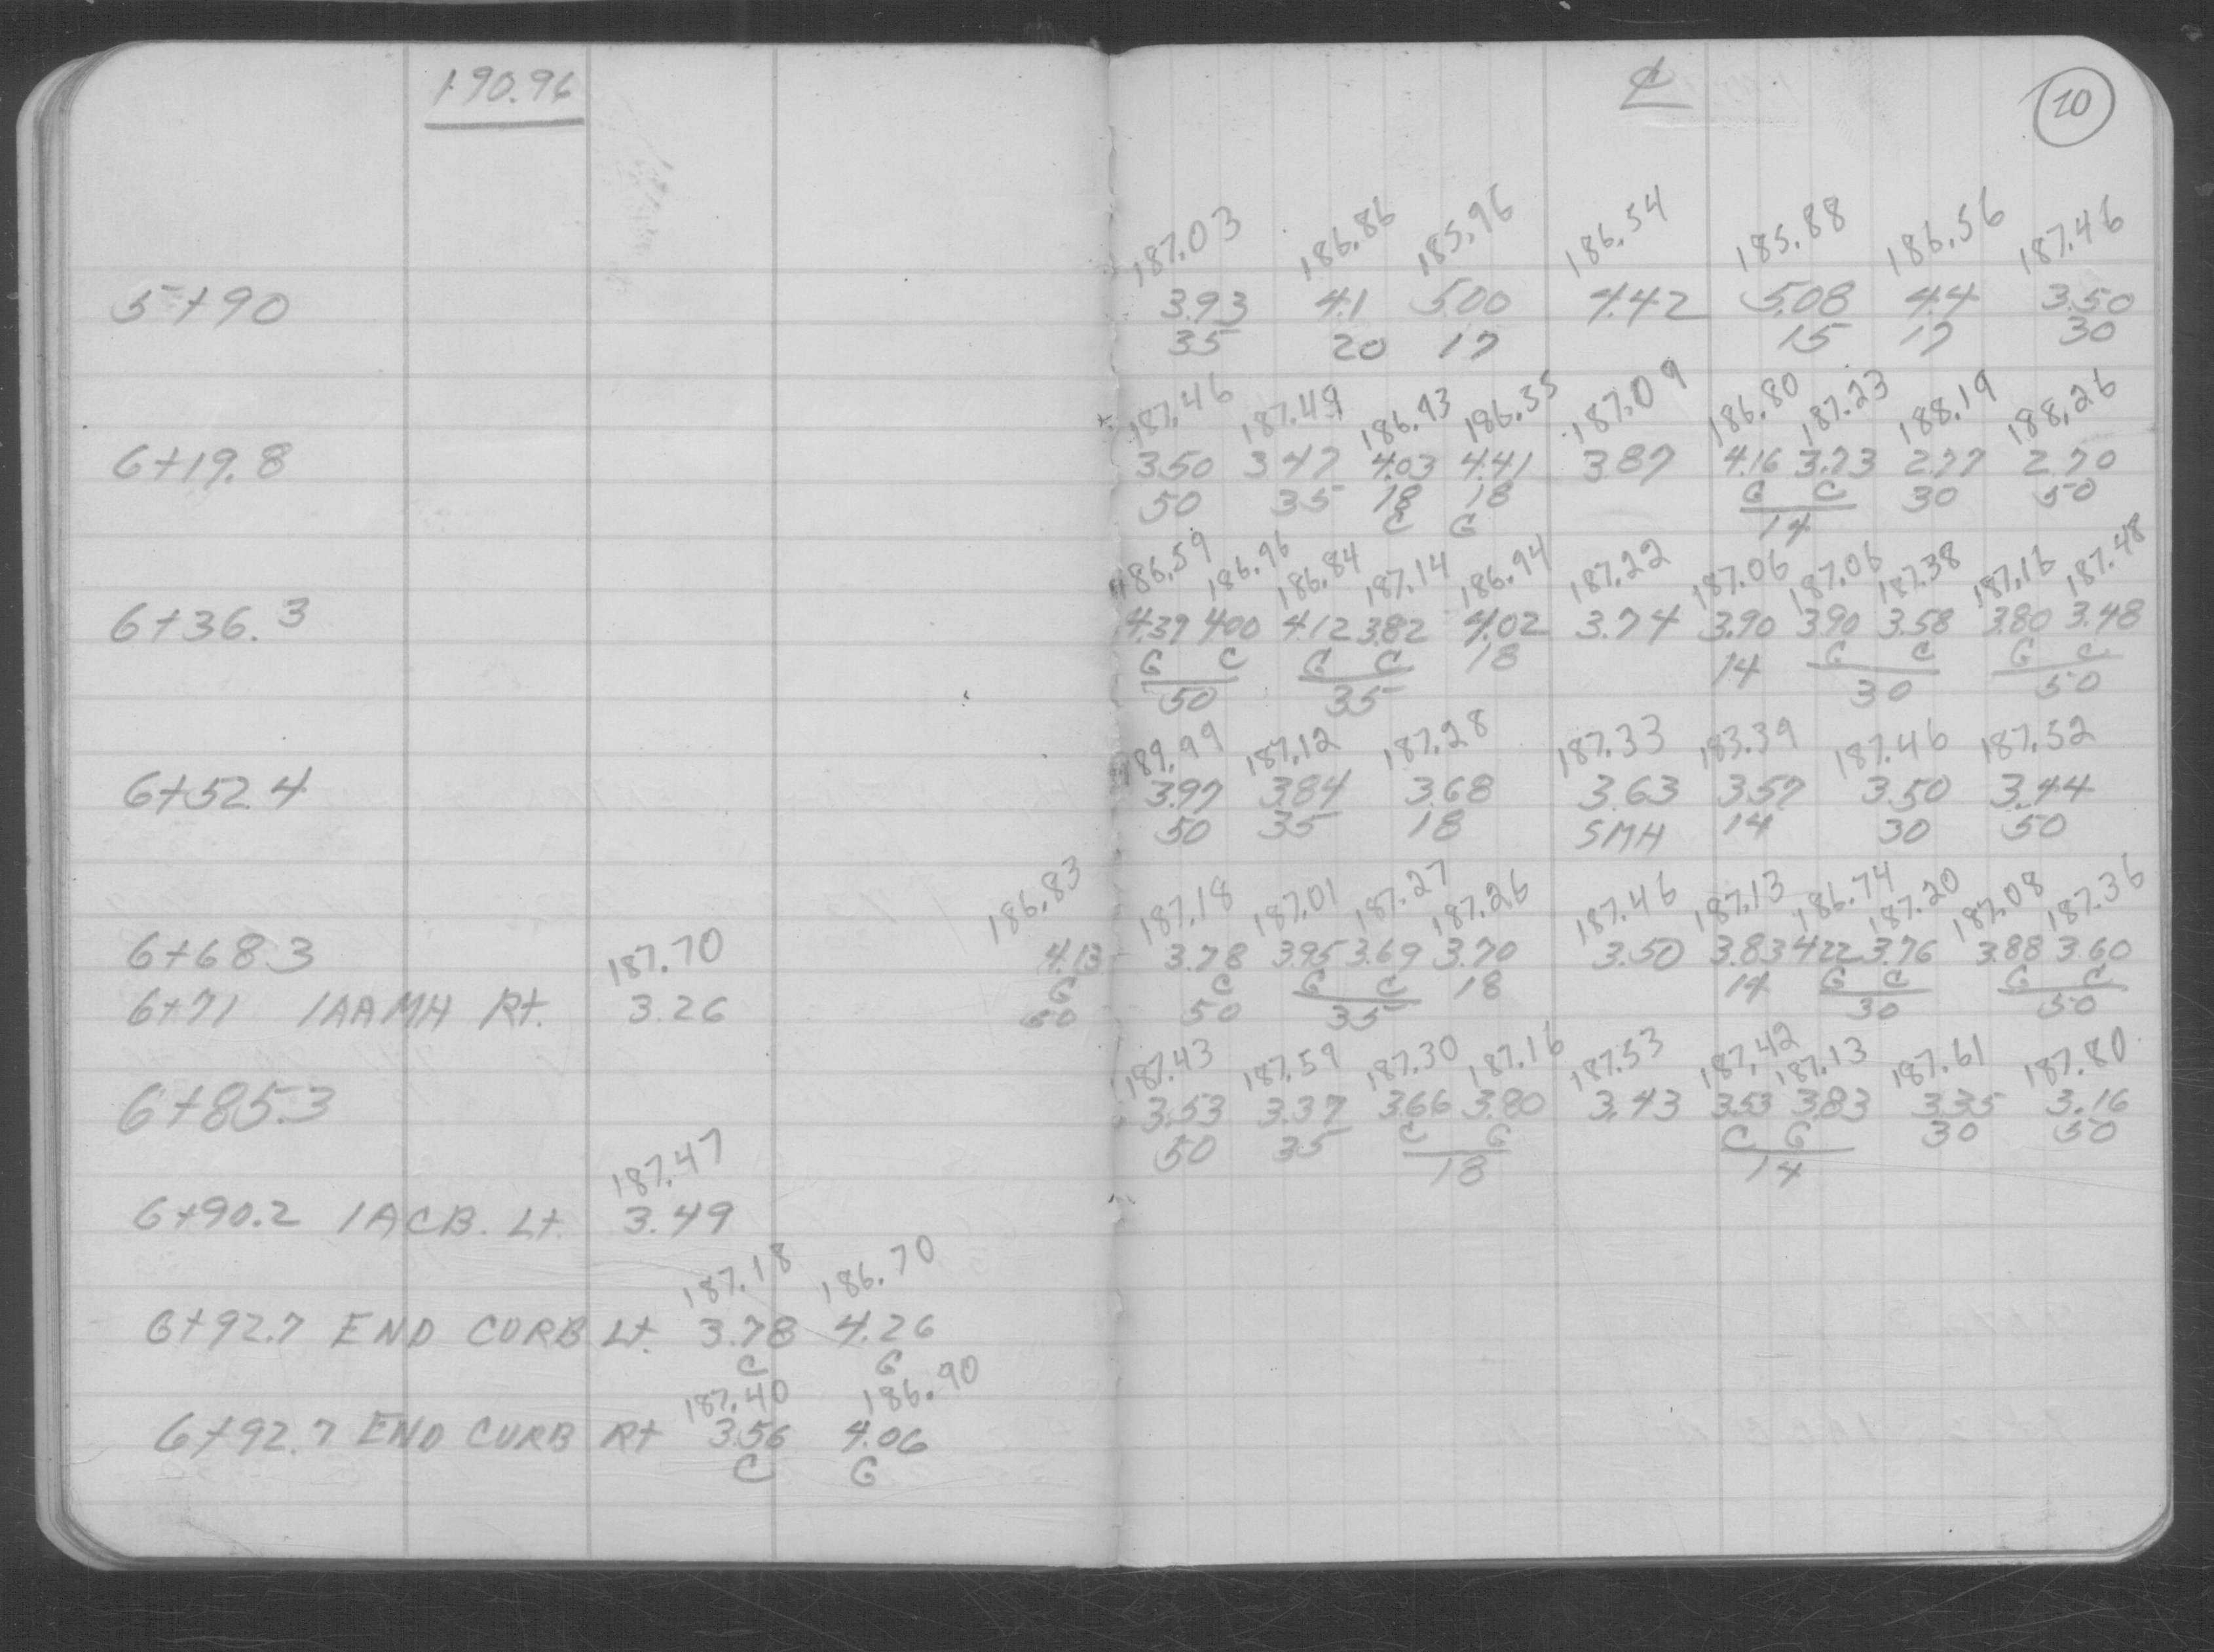 190.96
℄
10
187.03 186.86 185.96 186.54 185.88 186.56 187.46
5+90 3.93 4.1 5.00 4.42 5.08 4.4 3.50
35 20 17 15 17 30
187.46 187.49 186.93 186.35 187.09 186.80 187.23 188.19 188.26
6+19.8 3.50 3.47 4.03 4.41 3.87 4.16 3.73 2.77 2.70
50 35 18 18 G C 30 50
C G 14
186.59 186.96 186.84 187.14 186.94 187.22 187.06 187.06 187.38 187.16 187.48
6+36.3 4.37 4.00 4.12 3.82 4.02 3.74 3.90 3.90 3.58 3.80 3.48
G C G C 18 14 G C G C
50 35 30 50
189.99 187.12 187.28 187.33 183.39 187.46 187.52
6+52.4 3.97 3.84 3.68 3.63 3.57 3.50 3.44
50 35 18 SMH 14 30 50
186.83 187.18 187.01 187.27 187.26 187.46 187.13 186.74 187.20 187.08 187.36
6+68.3 4.13 3.78 3.95 3.69 3.70 3.50 3.83 4.22 3.76 3.88 3.60
G C G C 18 14 G C G C
50 50 35 30 50
187.70
6+71 1AAMH Rt. 3.26
187.43 187.59 187.30 187.16 187.53 187.42 187.13 187.61 187.80
6+85.3 3.53 3.37 3.66 3.80 3.43 3.53 3.83 3.35 3.16
50 35 C G C G 30 50
18 14
187.47
6+90.2 1ACB. Lt 3.49
187.18 186.70
6+92.7 END CURB Lt. 3.78 4.26
C G
187.40 186.90
6+92.7 END CURB Rt 3.56 4.06
C G